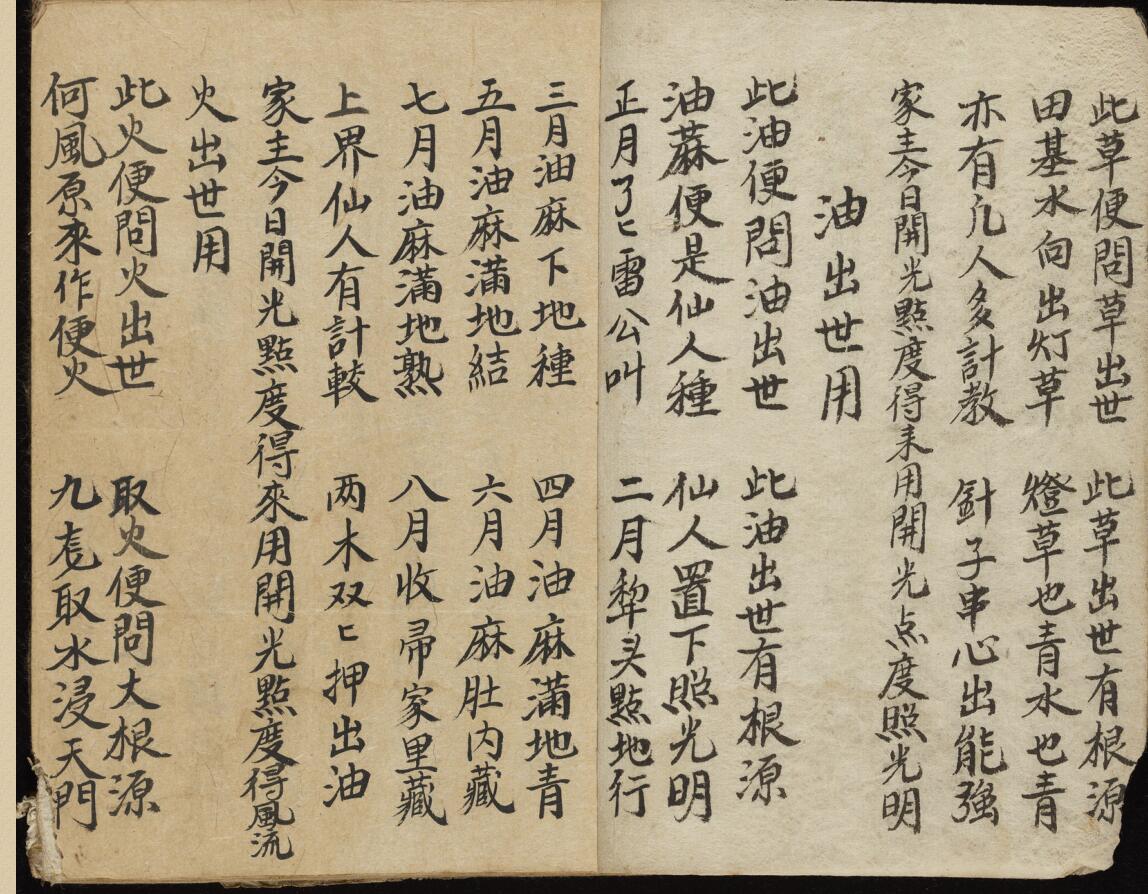 此草便問草出世 此草出世有根源
田基水向出灯草 燈草也青水也青
亦有凡人多計教 針子串心出能強
家主今日開光點度得来用開光点度照光明
油出世用
此油便問油出世 此油出世有根源
油蔴便是仙人種 仙人置下照光明
正月了〻雷公叫 二月犂头點地行
三月油麻下地種 四月油麻滿地青
五月油麻滿地結 六月油麻肚内藏
七月油麻滿地熟 八月收帰家里藏
上界仙人有計較 两木双〻押出油
家主今日開光點度得來用開光點度得風流
火出世用
此火便問火出世 取火便問大根源
何風原來作便火 九取水浸天門